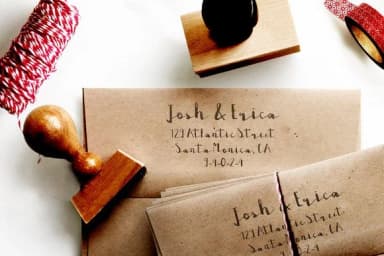 Josh & Erica
129 Atlantic Street
Santa Monica, CA
9-0-2-9
Josh & Erica
129 Atlantic Street
Santa Monica, CA
9-0-2-9